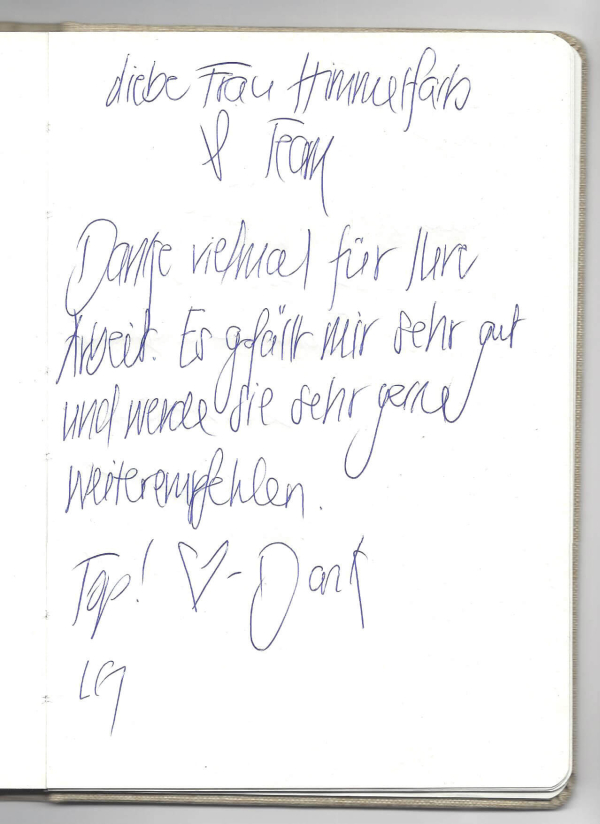 Liebe Frau Himmelfarb
& Team
Danke vielmal für Ihre
Arbeit. Es gefällt mir sehr gut
und werde Sie sehr gerne
weiterempfehlen.
Top! ♡-Dank
LG